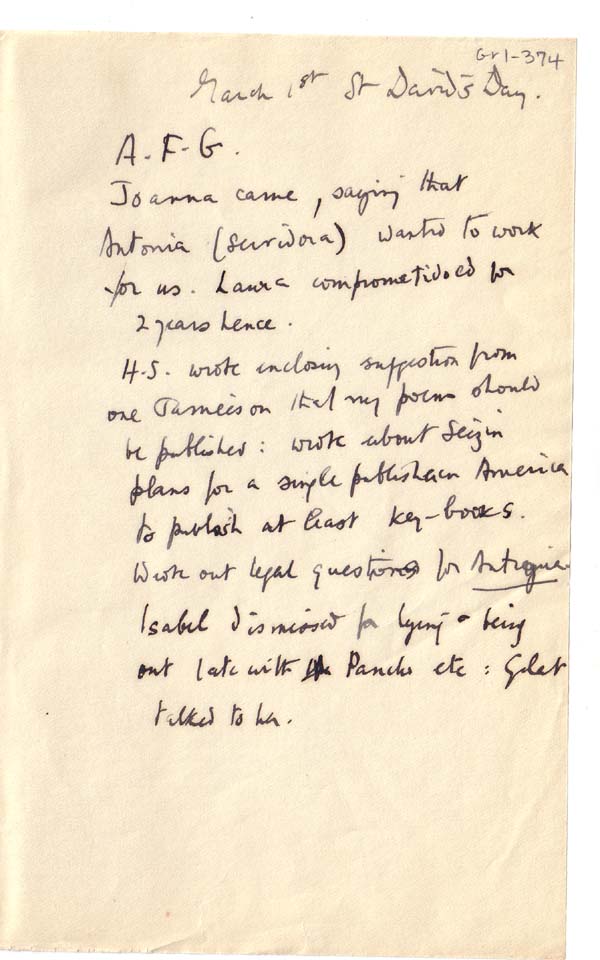 Gr1-374
March 1st St David's Day.
A-F-G.
Joanna came, saying that
Antonia (servidora) wanted to work
for us. Laura comprometidoed for
2 years hence.
H.S. wrote enclosing suggestion from
one that my poems should
be published: wrote about Seizin
plans for a single publisher in America
to publish at least key-books.
Wrote out legal questions for Antigua.
Isabel dismissed for lying & being
out late with Pancho etc: Gelat
talked to her.